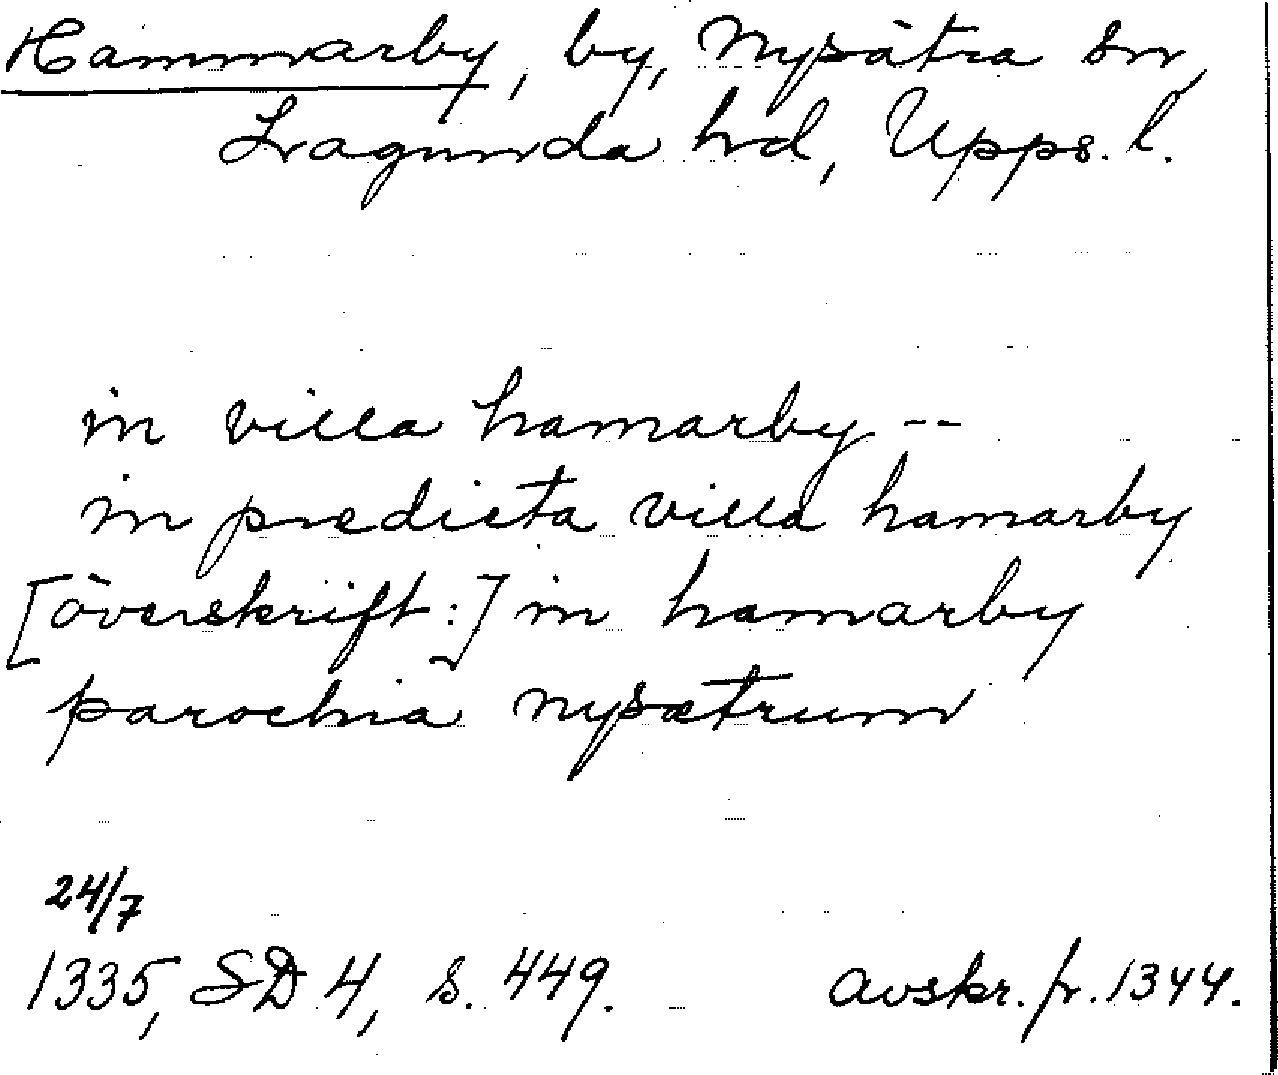 Hammarby, by, Nysätra sn,
Lagunda hd, Upps. l.
in villa hamarby --
in predicta villa hamarby
[överskrift:] in hamarby
parochia nysætrum
24/7
1335, SD 4, s. 449. Avskr. fr. 1344.